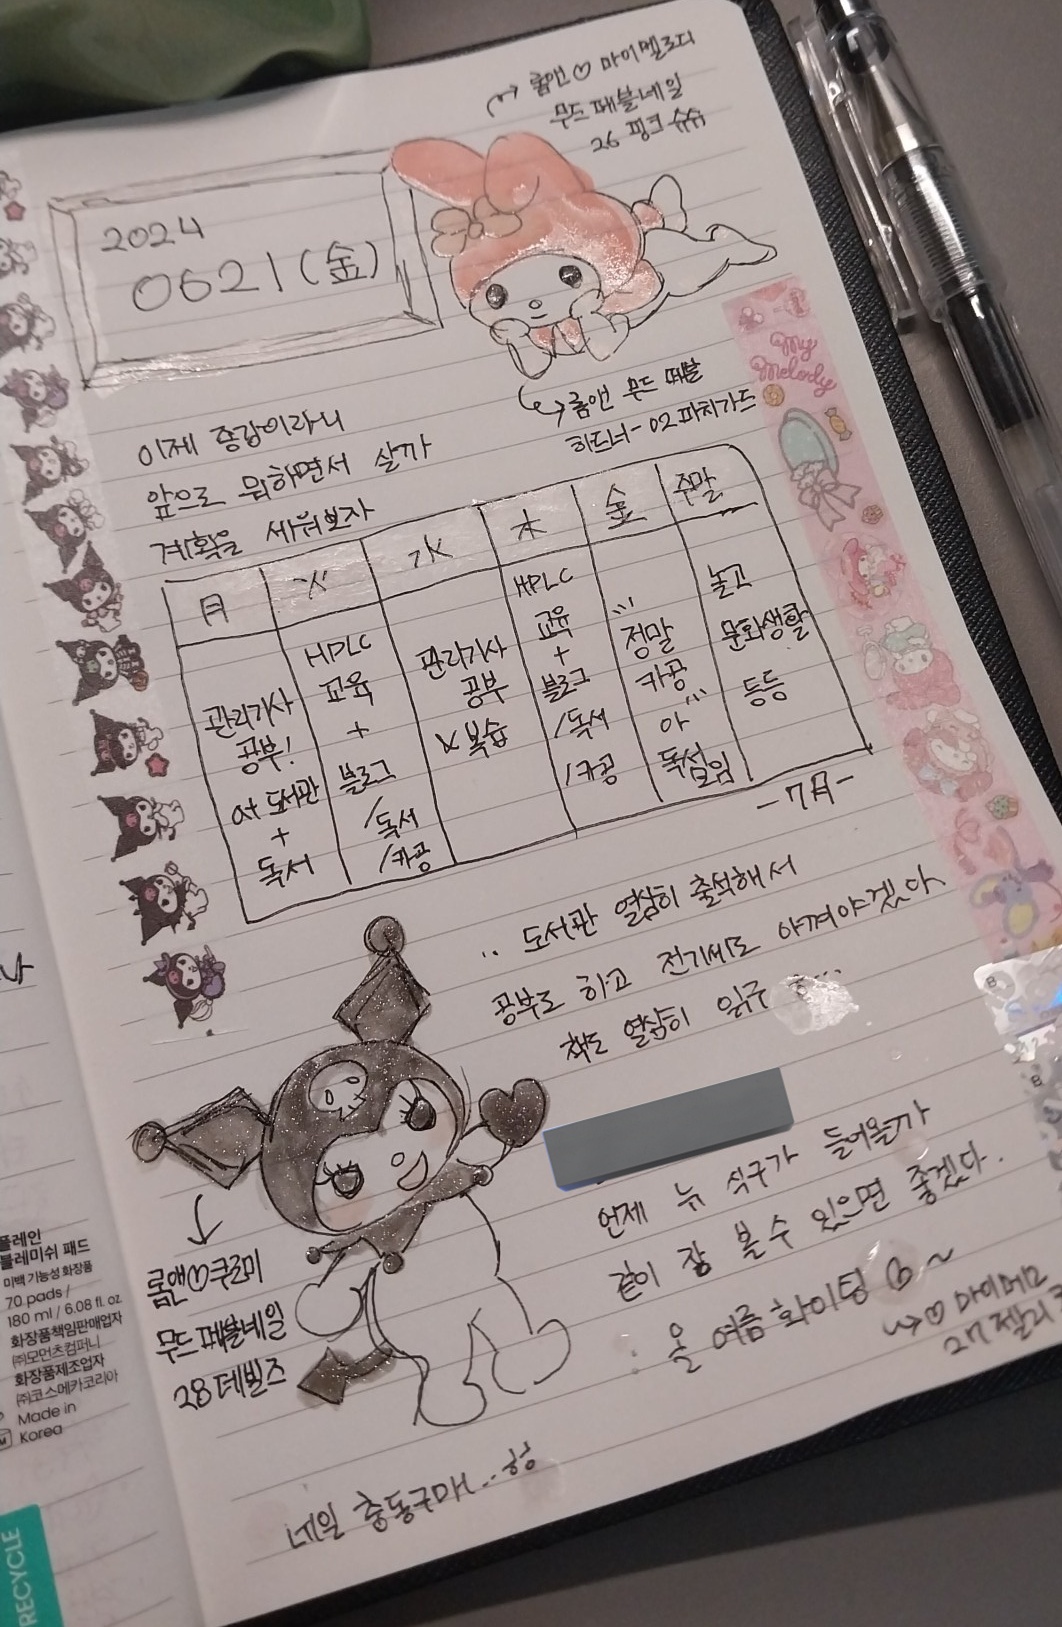 롬앤♡마이멜로디
무드페블네일
26 핑크슈슈
2024
0621(金)
My
Melody
롬앤 무드 페블
하드너-02파치가드
이제 종강이라니
앞으로 뭐하면서 살까
계획을 세워보자
月 火 水 木 金 주말
관리기사
공부!
at 도서관
+
독서
HPLC
교육
+
블로그
/독서
/카공
관리기사
공부
복습
HPLC
교육
+
블로그
/독서
/카공
정말
카공
아
독설임
놀고
문화생활
등등
-7月-
도서관 열심히 출석해서
공부도 하고 전기세도 아껴야겠다
책도 열심히 읽구
언제 뉴 식구가 들어올까
같이 잘 볼 수 있으면 좋겠다.
올 여름 화이팅 ~
♡마이메로
27 젤리
롬앤♡쿠로미
무드페블네일
28 데빌즈
네일 충동구매.. 헝
플레인
블레미쉬 패드
미백 기능성 화장품
70 pads /
180 ml / 6.08 fl. oz
화장품책임판매업자
㈜모먼츠컴퍼니
화장품제조업자
㈜코스메카코리아
Made in
Korea
RECYCLE